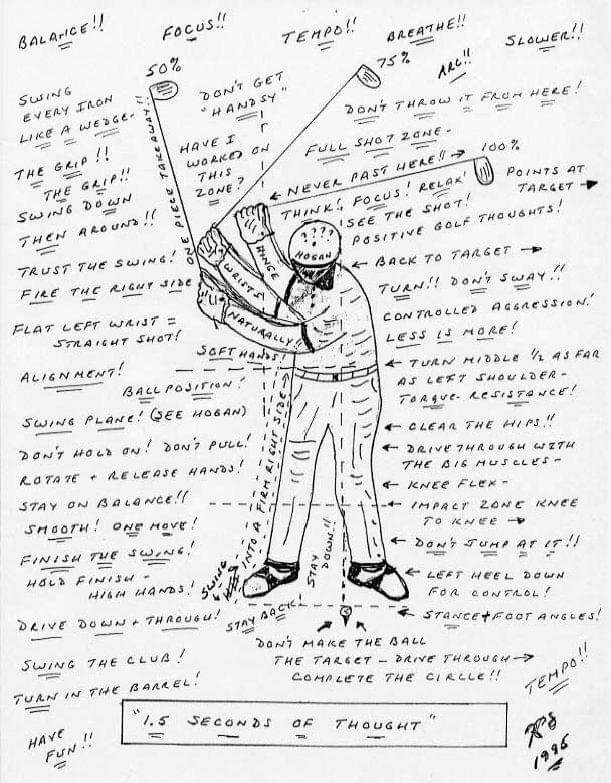 BALANCE!!
FOCUS!!
TEMPO!!
BREATHE!!
SLOWER!!
ARC!!
50%
75%
SWING
EVERY IRON
LIKE A WEDGE-
DON'T GET
"HANDSY"
DON'T THROW IT FROM HERE!
THE GRIP!!
THE GRIP!!
SWING DOWN
THEN AROUND!!
ONE PIECE TAKEAWAY!!
HAVE I
WORKED ON
THIS
ZONE?
FULL SHOT ZONE-
100%
← NEVER PAST HERE!! →
POINTS AT
TARGET →
THINK! FOCUS! RELAX!
SEE THE SHOT!
POSITIVE GOLF THOUGHTS!
????
HOGAN
HINGE
WRISTS
NATURALLY!!
TRUST THE SWING!
FIRE THE RIGHT SIDE
FLAT LEFT WRIST =
STRAIGHT SHOT!
SOFT HANDS!
ALIGNMENT!
BALL POSITION!
SWING PLANE! (SEE HOGAN)
DON'T HOLD ON! DON'T PULL!
ROTATE + RELEASE HANDS!
STAY ON BALANCE!!
SMOOTH! ONE MOVE!
FINISH THE SWING!
HOLD FINISH -
HIGH HANDS!
DRIVE DOWN + THROUGH!
SWING THE CLUB!
TURN IN THE BARREL!
HAVE
FUN!!
← BACK TO TARGET →
TURN!! DON'T SWAY!!
CONTROLLED AGGRESSION!
LESS IS MORE!
← TURN MIDDLE 1/2 AS FAR
AS LEFT SHOULDER-
TORQUE- RESISTANCE!
← CLEAR THE HIPS!!
← DRIVE THROUGH WITH
THE BIG MUSCLES-
← KNEE FLEX-
← IMPACT ZONE KNEE
TO KNEE →
← DON'T JUMP AT IT!!
← LEFT HEEL DOWN
FOR CONTROL!
← STANCE + FOOT ANGLES!
SWING
INTO A FIRM RIGHT SIDE
STAY
DOWN!!
STAY BACK
DON'T MAKE THE BALL
THE TARGET - DRIVE THROUGH →
COMPLETE THE CIRCLE!!
TEMPO!!
"1.5 SECONDS OF THOUGHT"
1996